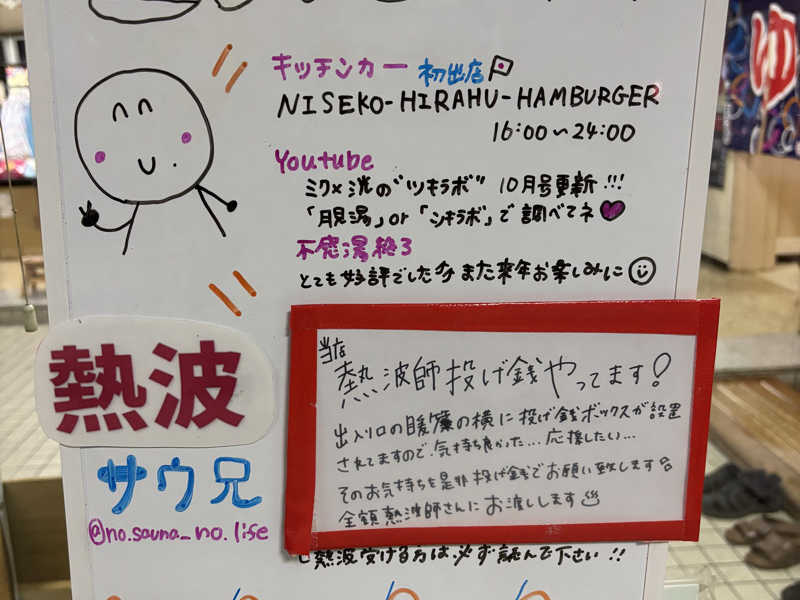 キッチンカー 初出店
NISEKO-HIRAHU-HAMBURGER
16:00～24:00
Youtube
ミクメ洸の"ツキラボ" 10月号更新!!!
「月見湯」or「ツキラボ」で調べてネ
不感湯終了
とても好評でした また来年お楽しみに
熱波
サウ兄
@no.sauna_no.life
当店
熱波師投げ銭やってます!
出入り口の暖簾の横に投げ銭ボックスが設置
されてますので、気持ち良かった...応援したい...
そのお気持ちを是非投げ銭でお願い致します
全額熱波師さんにお渡しします
熱波受ける方は必ず読んで下さい!!
ゆ